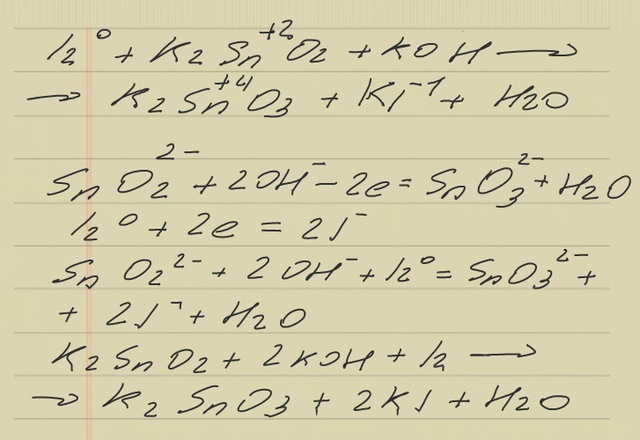 I₂⁰ + K₂Sn⁺²O₂ + KOH →
→ K₂Sn⁺⁴O₃ + KI⁻¹ + H₂O
SnO₂²⁻ + 2OH⁻ - 2e = SnO₃²⁻ + H₂O
I₂⁰ + 2e = 2I⁻
SnO₂²⁻ + 2OH⁻ + I₂⁰ = SnO₃²⁻ +
+ 2I⁻ + H₂O
K₂SnO₂ + 2KOH + I₂ →
→ K₂SnO₃ + 2KI + H₂O